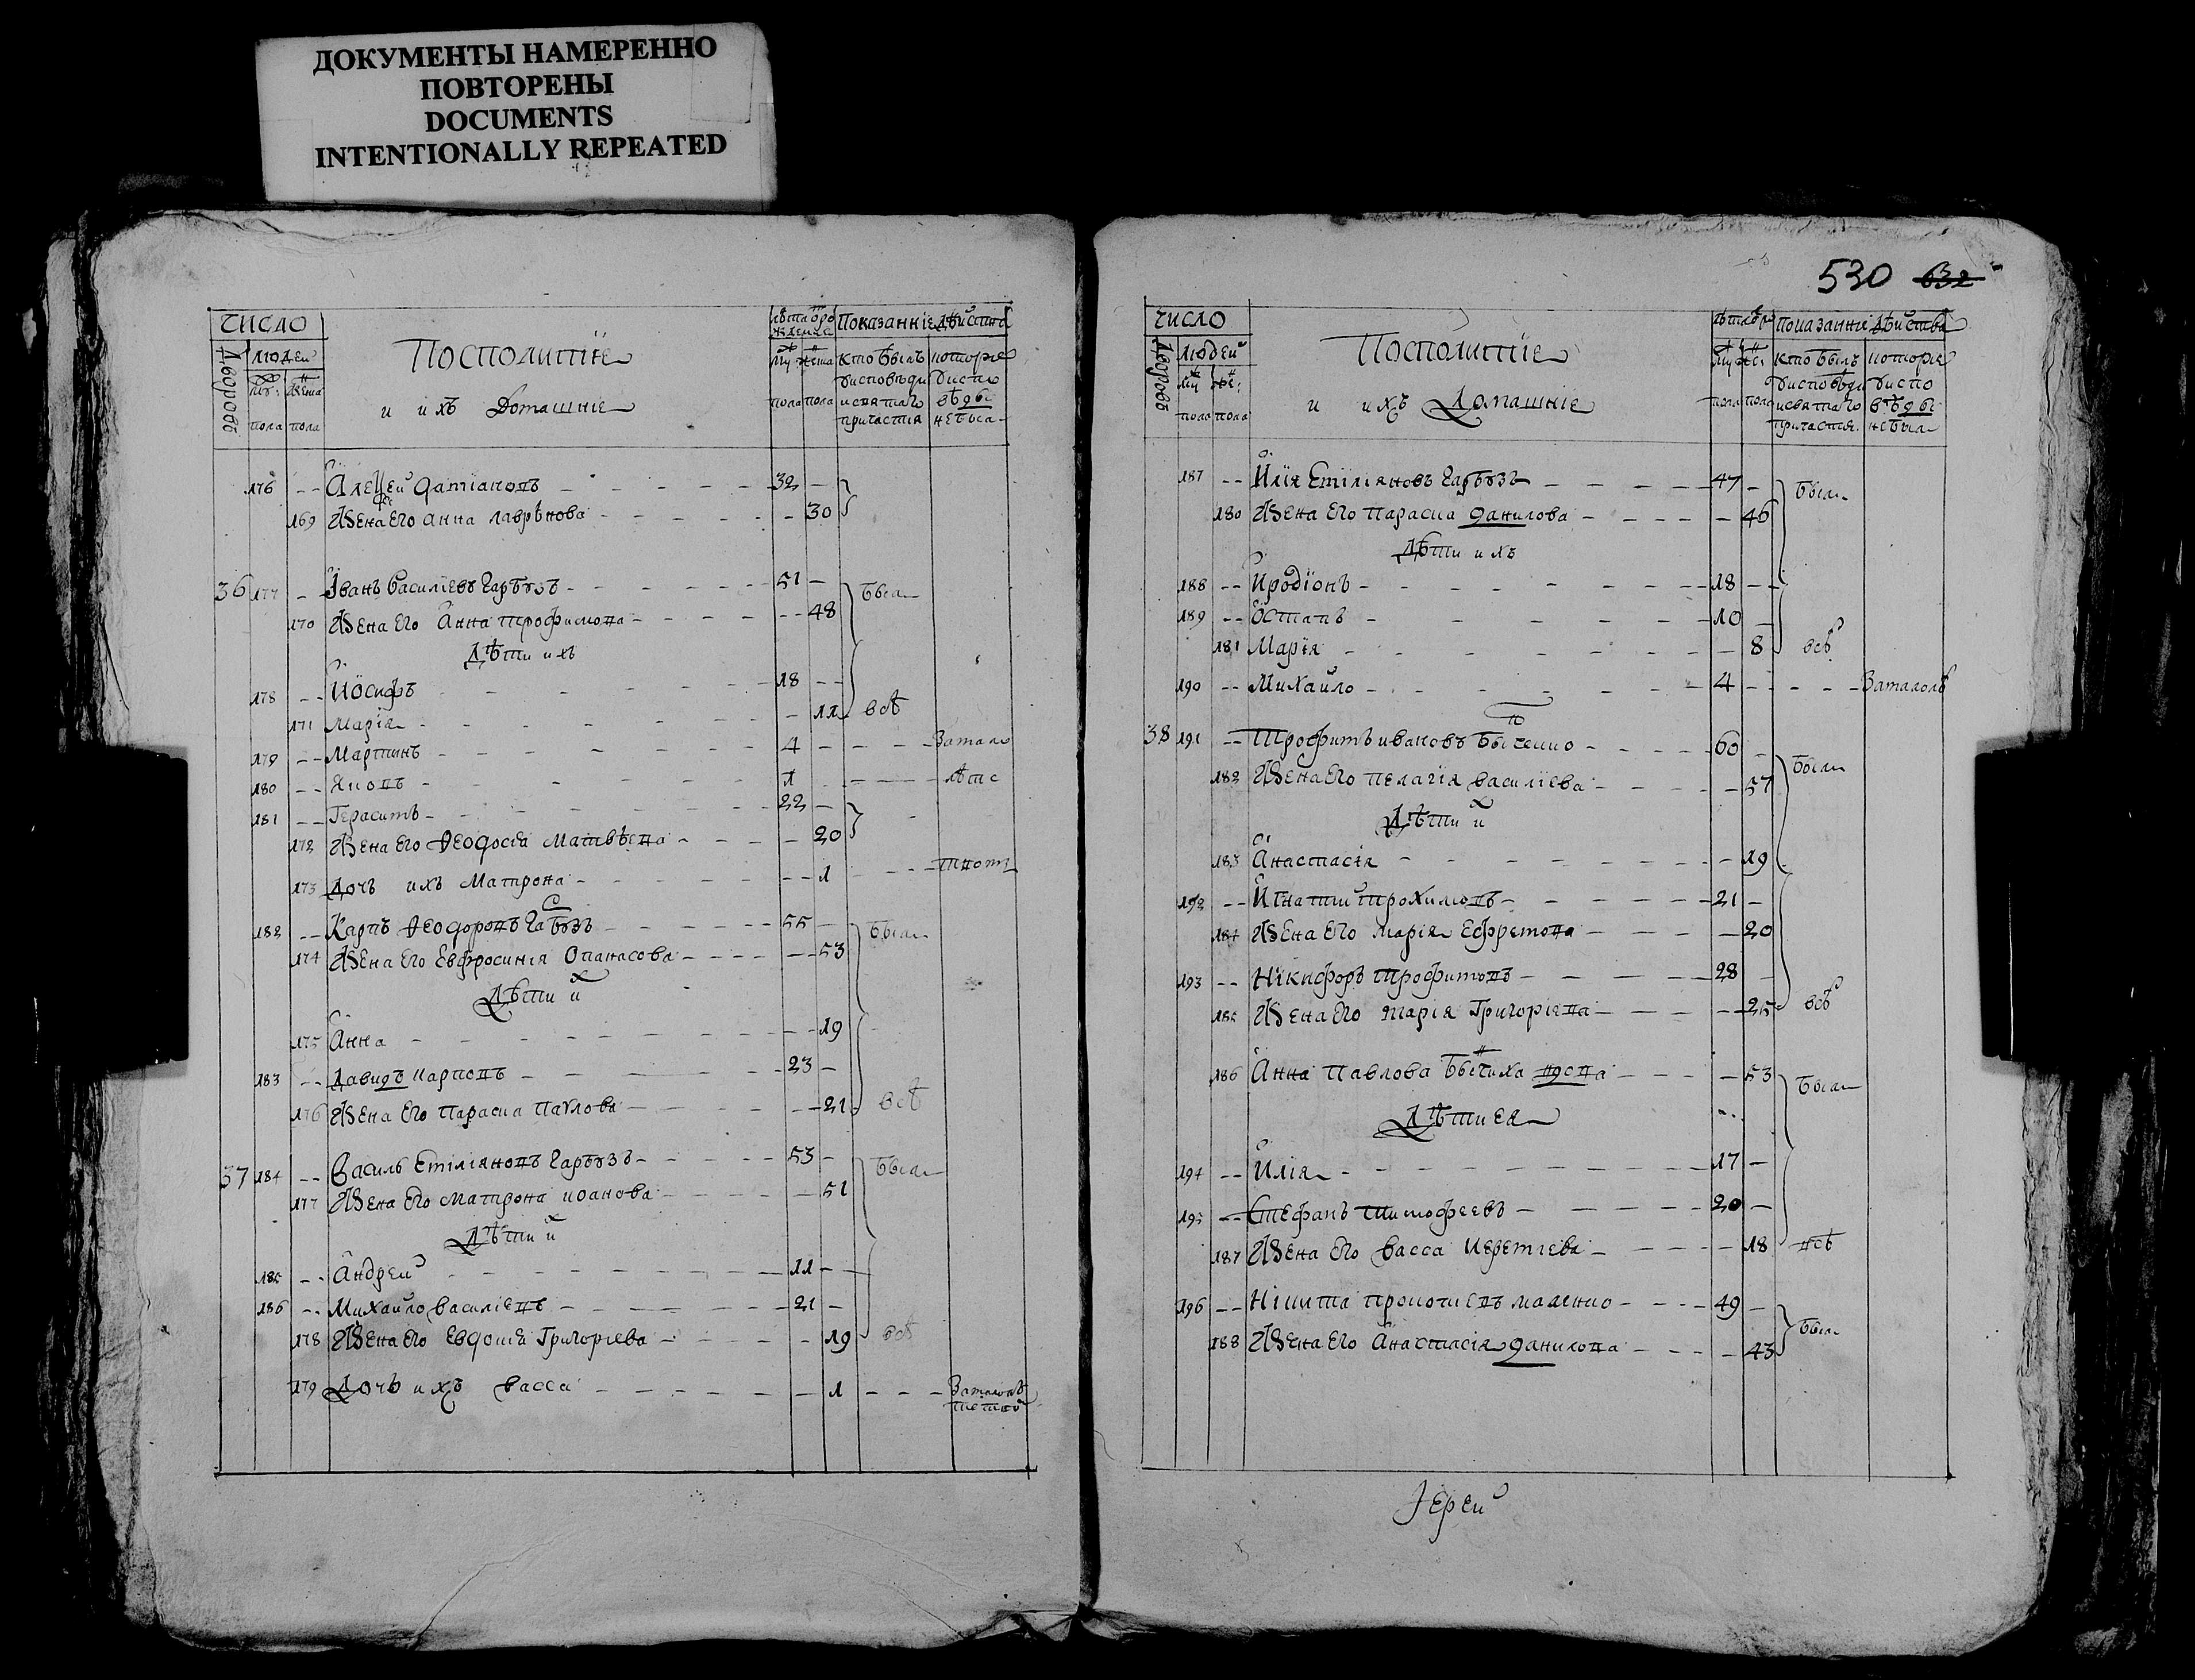 ДОКУМЕНТЫ НАМЕРЕННО
ПОВТОРЕНЫ
DOCUMENTS
INTENTIONALLY REPEATED
ЧИСЛО
Дворовъ
людей
пола пола
Посполитїе
и ихъ Домашнїе
Показаннїе дѣйства
пола пола
кто былъ
исвятаго
причастія
176 -- Алеѯей Дамїановъ 32
169 Жена Его Анна лаврѣнова 30
36 177 -- Іванъ Василїевъ Гарбузъ 51 были
170 Жена Его Анна трофимова 48
Дѣти ихъ
178 -- Иосифъ 18
171 Марїя 11 всѣ
179 -- Мартынъ 4 замало
180 -- Яковъ 1 лѣтс
181 -- Герасимъ 22
172 Жена Его Ѳеодосїя Матвѣева 20
173 Дочь ихъ Матрона 1
182 -- Карпъ Ѳеодоровъ Гарбузъ 55 были
174 Жена Его Евфросинїя Опанасова 53
Дѣти их
175 Анна 19
183 -- Давидъ карповъ 23
176 Жена Его Параска Павлова 21 всѣ
37 184 -- Василь Емілїяновъ Гарбузъ 53 были
177 Жена Его Матрона иванова 51
Дѣти их
185 -- Андрей 11
186 -- Михайло Василїевъ 21
178 Жена Его Евдокїя Григорїева 19 всѣ
179 Дочь ихъ васса 1
530 632
ЧИСЛО
Дворовъ
людей
пола пола
Посполитїе
и ихъ Домашнїе
Показаннїе дѣйства
пола пола
кто былъ
исвятаго
причастія
187 -- Илїя Емілїяновъ Гарбузъ 47 были
180 Жена Его параска данилова 46
Дѣти ихъ
188 -- Иродїонъ 18
189 -- Остапъ 10
181 Марїя 8 всѣ
190 -- Михайло 4
38 191 -- Трофимъ ивановъ 60 были
182 Жена Его пелагїя василїева 57
Дѣти их
183 Анастасїя 19
192 -- Игнатий трохимовъ 21
184 Жена Его марїя Ефремова 20
193 -- Нїкифоръ трофимовъ 28
185 Жена Его марїя Григорїева 25 всѣ
186 Анна Павлова вдова 53 были
Дѣти Ея
194 -- Илїя 17
195 -- Стефанъ тимофеевъ 20
187 Жена его васса Иеремїева 18 всѣ
196 -- Нїкита прокопиевъ маленко 49 были
188 Жена Его Анастасїя данилова 43
Іерей